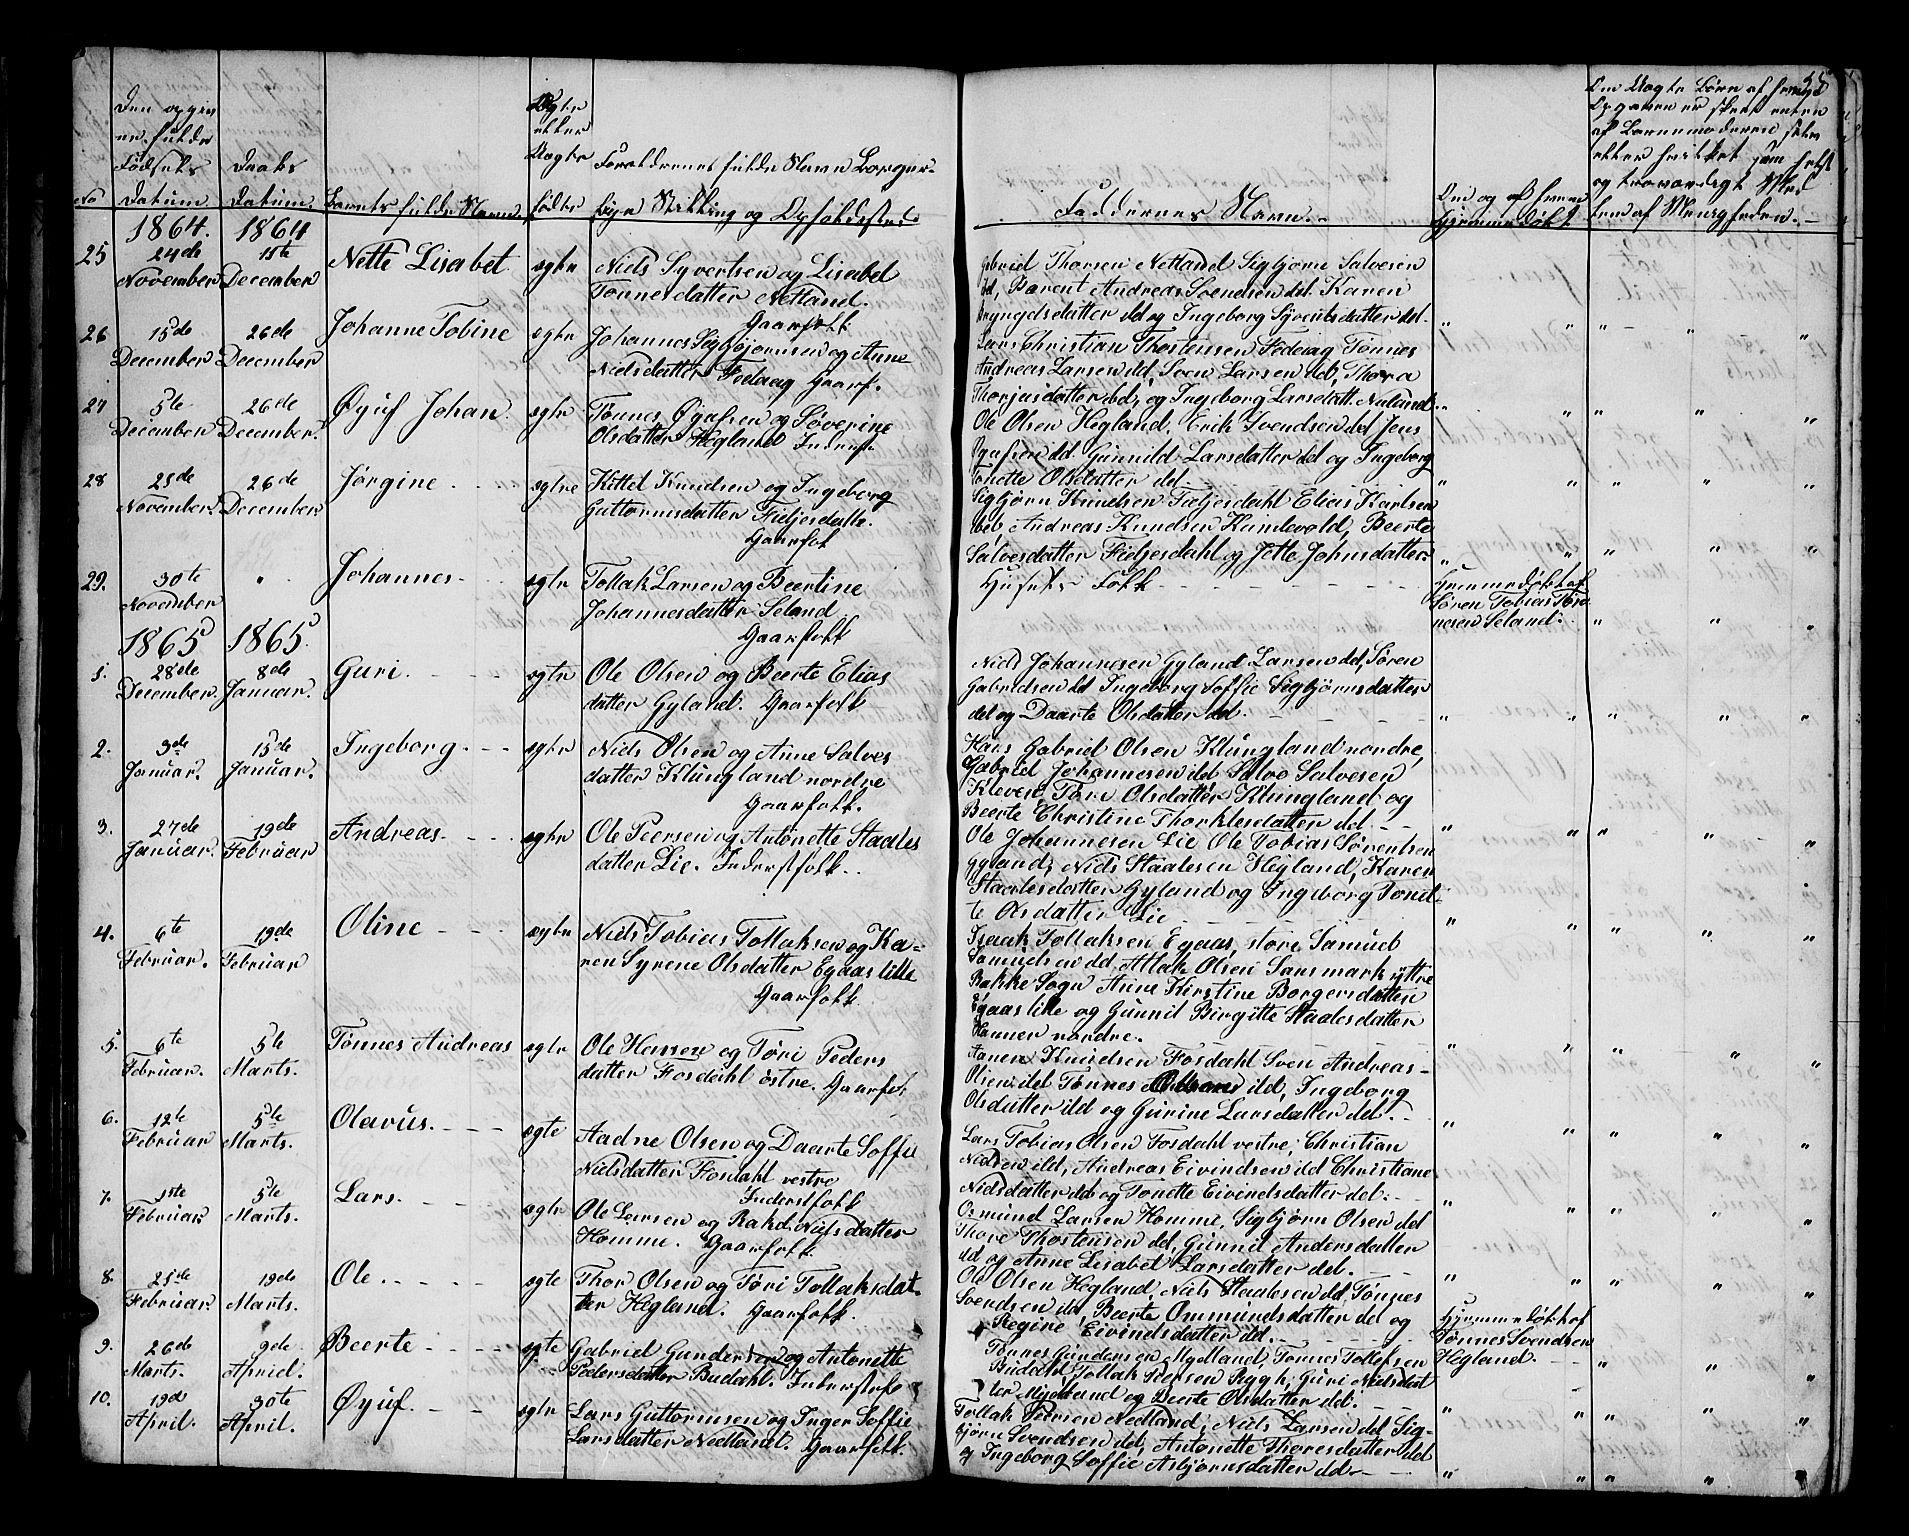 No
Den opgivne fulde Fødsels Datum.
Daabs Datum.
Barnets fulde Navn
Ægte eller Uægte fødte
Forældrenes fulde Navn Borgerlige Stilling og Opholdssted
Faddernes Navn.
Om og af hvem Hjemmedøbt.
55
1864. 1864
25
24de November
1ste December
Nette Lisabet
ægte
Niels Syvertsen og Lisabet
Tønnesdatter Netland.
Gaarfolk
Gabriel Thorsen Netland Sigbjørn Salvesen
dd, Bærent Andreas Svendsen dd. Karen
dd og Ingeborg Syvertsdatter dd.
26
15de December
26de December
Johanne Tobine
ægte
Johannes Sigbjørnsen og Anne
Nielsdatter Fedeog Gaarf.
Lars Christian Thostensen Fedeog Tønnes
Andreas Larsen dd, Sven Larsen dd, Thora
Thorjusdatter dd, og Ingeborg Larsdatt. Nuland.
27
5te December
26de December.
Øyuf Johan.
ægte
Tønnes Øyufsen og Søverine
Olsdatter Hegland Inderst.
Ole Olsen Hegland, Erik Svendsen dd Jens
Øyufsen dd Gunnild Larsdatter dd og Ingeborg
Tonette Olsdatter dd.
28
25de November.
26de December
Jørgine
ægte
Kittel Knudsen og Ingeborg
Guttormsdatter Fidjesdahl.
Gaarfolk
Sigbjørn Knudsen Fidjesdahl Elias Karlsen
dd, Andreas Knudsen Kundevold, Beerte
Salvesdatter Fidjesdahl og Jette Johnsdatter
29.
30te November
Johannes
ægte
Tollak Larsen og Beertine
Johannesdatter Seland.
Gaarfolk
Husets Folk
Hjemmedøbt af
Søren Tobias Tønnesen Seland.
1865 1865
1.
28de December.
8de Januar.
Guri.
ægte
Ole Olsen og Beerte Elias
datter Gyland. Gaarfolk
Niels Johannesen Gyland Larsen dd, Søren
Gabrielsen dd Ingeborg Soffie Sigbjørnsdatter
dd og Daarte Olsdatter dd.
2.
3de Januar.
15de Januar.
Ingeborg.
ægte
Niels Olsen og Anne Salves
datter Klungland nordre
Gaarfolk.
Hans Gabriel Olsen Klungland nordre,
Gabriel Johannesen dd Salve Salvesen
Kleven Tøri Olsdatter Klungland og
Beerte Christine Thorkelsdatter dd.
3.
27de Januar.
19de Februar
Andreas
ægte
Ole Peersen og Antonette Staales
datter Lie. Inderstfolk.
Ole Johannesen Lie Ole Tobias Sørentsen
Gyland, Niels Staalesen Hegland, Karen
Staalesdatter Gyland og Ingeborg Tonette
Olsdatter Lie
4.
6te Februar.
19de Februar
Oline
ægte
Niels Tobias Tollaksen og Ka-
ren Syrene Olsdatter Egaas lille
Gaarfolk.
Isaak Tollaksen Egaas store Samuel
Samuelsen dd, Atlak Olsen Sansmark yttre
Bakke Sogn Anne Kirstine Borgersdatter
Egaas lille og Gunnil Birgitte Staalesdatter
Hanner nordre.
5.
6te Februar.
5te Marts.
Tønnes Andreas
ægte
Ole Hansen og Tøri Peders
datter Fosdahl østre. Gaarfol
Aanen Knudsen Fosdahl Sven Andreas
Olsen dd Tønnes dd, Ingeborg
Olsdatter dd og Gurine Larsdatter dd.
6.
12te Februar
5te Marts.
Olavus.
ægte
Aadne Olsen og Daarte Soffie
Nielsdatter Fosdahl vestre
Inderstfolk
Lars Tobias Olsen Fosdahl vestre, Christian
Nielsen dd, Andreas Eivindsen dd Christiane
Nielsdatter dd og Tonette Eivindsdatter dd.
7.
1ste Februar
5te Marts.
Lars.
ægte
Ole Larsen og Rakel Nielsdatter
Homme. Gaarfolk
Omund Larsen Homme, Sigbjørn Olsen dd
Thore Thostensen dd, Gunnil Andersdatter
dd og Anne Lisabet Larsdatter dd.
8.
25de Februar.
19de Marts.
Ole
ægte
Thor Olsen og Tøri Tollaksdat-
ter Hegland. Gaarfolk.
Ole Olsen Hegland, Niels Staalesen dd Tønnes
Svendsen dd, Beerte Ommundsdatter dd og
Regine Eivindsdatter dd.
Hjemmedøbt af
Tønnes Svendsen
Hegland.
9.
26de Marts.
9de Apriel.
Beerte
ægte
Gabriel Gundersen og Antonette
Pedersdatter Budahl. Inderstfolk
Tønnes Gundersen Mydland, Tønnes Tollefsen
Budahl, Tollak Peersen Rygh, Guri Nielsdat
ter Mydland og Beerte Olsdatter dd.
10.
19de April.
30te April.
Øyuf.
ægte
Lars Guttormsen og Inger Soffie
Larsdatter Nedland. Gaarfolk.
Tollak Peersen Nedland, Niels Larsen dd Sig-
bjørn Svendsen dd, Antonette Thoresdatter dd
og Ingeborg Soffie Asbjørnsdatter dd